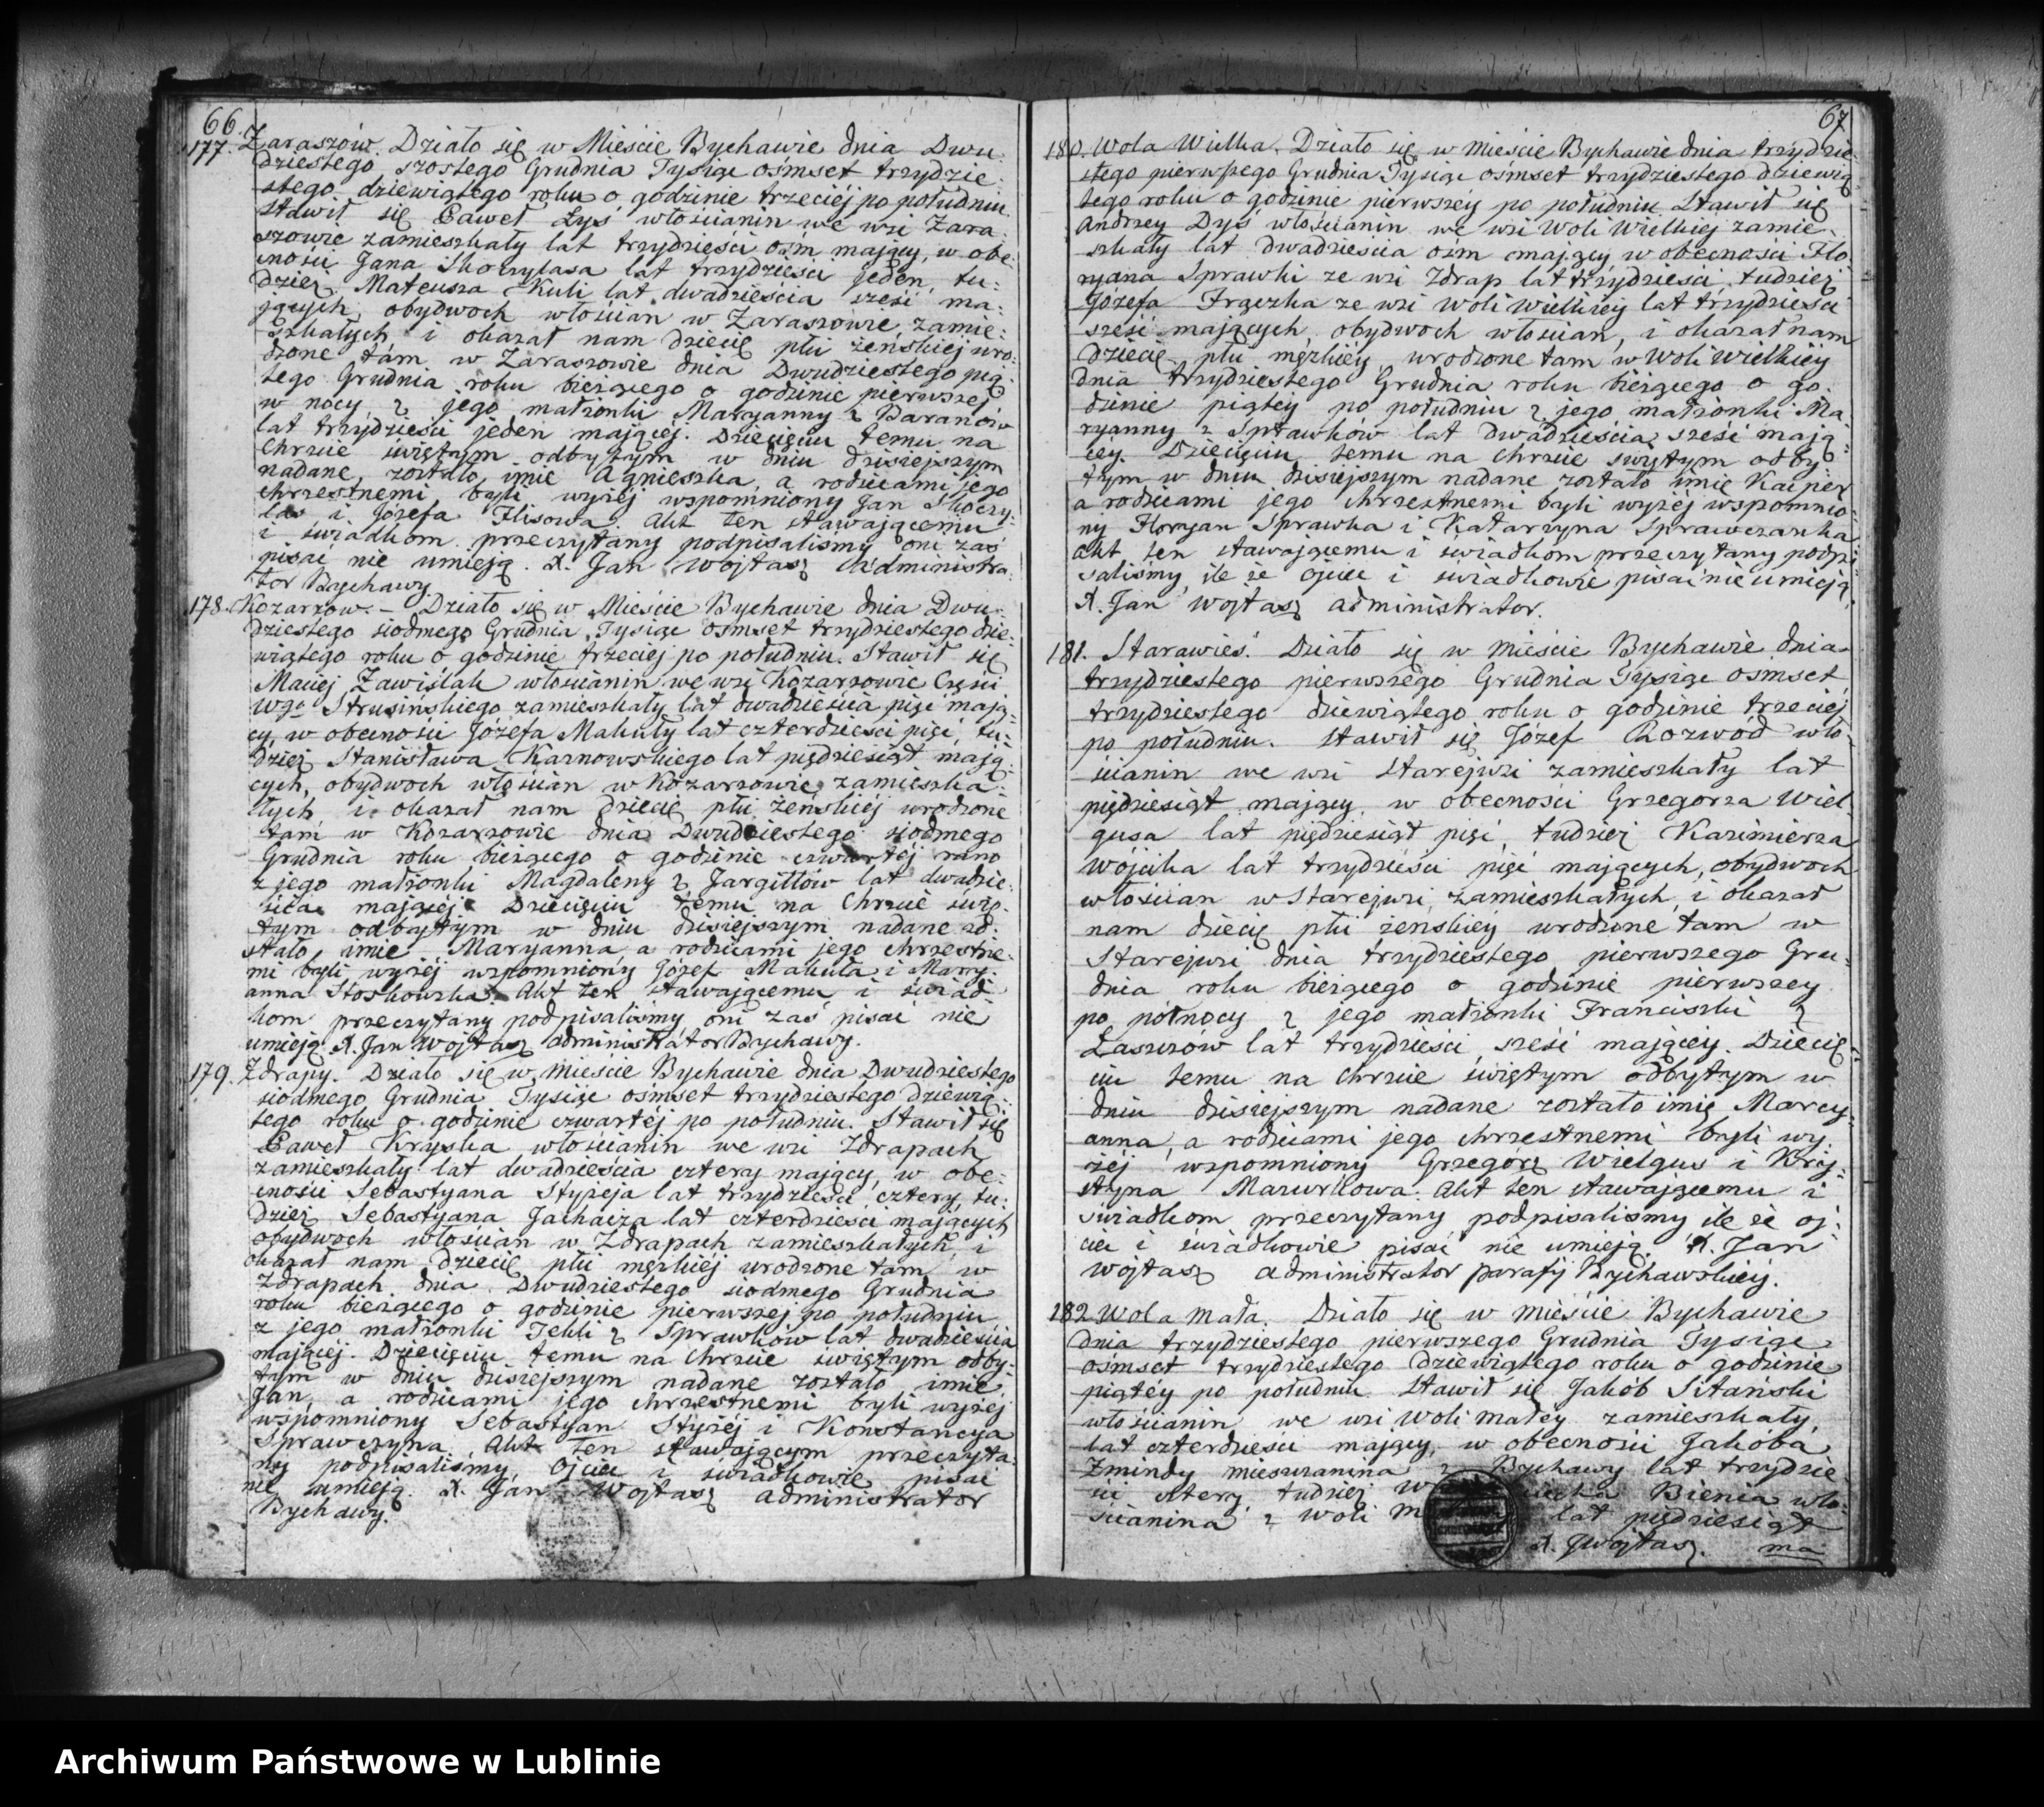 66.
177. Zaraszów. Działo się w Mieście Bychawie dnia Dwu-
dziestego szostego Grudnia Tysiąc ośmset trzydzie-
stego dziewiątego roku o godzinie trzeciéj po południu.
Stawił się Paweł Łyś włościanin we wsi Zara-
szowie zamieszkały lat trzydzieści ośm mający, w obe-
cności Jana Skoczylasa lat trzydzieści jeden, tu-
dzież Mateusza Kuli lat dwadzieścia sześć ma-
jących, obydwoch włościan w Zaraszowie zamie-
szkałych i okazał nam dziecię płci żeńskiej uro-
dzone tam w Zaraszowie dnia Dwudziestego pią-
tego Grudnia roku bieżącego o godzinie pierwszej
w nocy z jego małżonki Maryanny z Baranów
lat trzydzieści jeden mającéj. Dziecięciu temu na
Chrzcie świętym odbytym w dniu dzisiejszym
nadane zostało imie Agnieszka, a rodzicami jego
chrzestnemi byli wyżej wspomniony Jan Skoczy-
las i Józefa Flisowa. Akt ten stawającemu
i świadkom przeczytany podpisaliśmy oni zaś
pisać nie umieją. X. Jan Wojtasz Administra-
tor Bychawy.
178. Kozarzow. – Działo się w Mieście Bychawie dnia Dwu-
dziestego siodmego Grudnia Tysiąc ośmset trzydziestego dzie-
wiątego roku o godzinie trzeciej po południu. Stawił się
Maciej Zawiślak włościanin we wsi Kozarzowie Części
Wgo Strusińskiego zamieszkały lat dwadzieścia pięc mają-
cy, w obecności Józefa Makuły lat czterdzieści pięć, tu-
dzież Stanisława Karnowskiego lat pięcdziesiąt mają-
cych, obydwoch włościan w Kozarzowie zamieszka-
łych i okazał nam dziecię płci żeńskiéj urodzone
tam w Kozarzowie dnia Dwudziestego siodmego
Grudnia roku bieżącego o godzinie czwartéj rano
z jego małżonki Magdaleny z Jargiłłów lat dwadzie-
ścia mającéj. Dziecięciu temu na Chrzcie świę-
tym odbytym w dniu dzisiejszym nadane zo-
stało imie Maryanna, a rodzicami jego chrzestne-
mi byli wyżéj wspomniony Józef Makuła i Mary-
anna Stoskowska. Akt ten stawającemu i świad-
kom przeczytany podpisaliśmy oni zaś pisać nie
umieją. X. Jan Wojtasz Administrator Bychawy.
179. Zdrapy. Działo się w Mieście Bychawie dnia Dwudziestego
siodmego Grudnia Tysiąc ośmset trzydziestego dziewią-
tego roku o godzinie czwartéj po południu. Stawił się
Paweł Kryska włościanin we wsi Zdrapach
zamieszkały lat dwadzieścia cztery mający, w obe-
cności Sebastyana Styżeja lat trzydzieści cztery, tu-
dzież Sebastyana Jachacza lat czterdzieści mających
obydwoch włościan w Zdrapach zamieszkałych, i
okazał nam dziecię płci męzkiej urodzone tam w
Zdrapach dnia Dwudziestego siodmego Grudnia
roku bieżącego o godzinie pierwszej po południu
z jego małżonki Tekli z Sprawków lat dwadzieścia
mającej. Dziecięciu temu na Chrzcie świętym odby-
tym w dniu dzisiejszym nadane zostało imie
Jan, a rodzicami jego chrzestnemi byli wyżej
wspomniony Sebastyan Styżéj i Konstancya
Sprawczyna. Akt ten stawającym przeczyta-
ny podpisaliśmy, Ojciec i świadkowie pisać
nie umieją. X. Jan Wojtasz Administrator
Bychawy.
67
180. Wola Wielka. Działo się w Mieście Bychawie dnia trzydzie-
stego pierwszego Grudnia Tysiąc ośmset trzydziestego dziewią-
tego roku o godzinie pierwszéy po południu. Stawił się
Andrzey Dyś włościanin we wsi Woli Wielkiej zamie-
szkały lat dwadzieścia ośm mający w obecności Flo-
ryana Sprawki ze wsi Zdrap lat trzydzieści, tudzież
Józefa Frączka ze wsi Woli Wielkiey lat trzydzieści
sześć mających, obydwoch włościan, i okazał nam
dziecię płci męzkiéy urodzone tam w Woli Wielkiéy
dnia trzydziestego Grudnia roku bieżącego o go-
dzinie piątéy po południu z jego małżonki Ma-
ryanny z Sprawków lat dwadzieścia sześć mają-
céy. Dziecięciu temu na Chrzcie świętym odby-
tym w dniu dzisiejszym nadane zostało imię Kacper
a rodzicami jego chrzestnemi byli wyżéj wspomnio-
ny Floryan Sprawka i Katarzyna Sprawczanka
Akt ten stawającemu i świadkom przeczytany podpi-
saliśmy ile że ojciec i świadkowie pisać nie umieją
X. Jan Wojtasz Administrator.
181. Starawieś. Działo się w Mieście Bychawie dnia
trzydziestego pierwszego Grudnia Tysiąc ośmset
trzydziestego dziewiątego roku o godzinie trzeciéj
po południu. Stawił się Józef Rozwód wło-
ścianin we wsi Starejwsi zamieszkały lat
pięcdziesiąt mający, w obecności Grzegorza Wiel-
gusa lat pięcdziesiąt pięć, tudzież Kazimierza
Wójcika lat trzydzieści pięć mających, obydwoch
włościan w Starejwsi zamieszkałych, i okazał
nam dziecię płci żenskiéy urodzone tam w
Starejwsi dnia trzydziestego pierwszego Gru-
dnia roku bieżącego o godzinie pierwszey
po północy z jego małżonki Franciszki z
Łaszczów lat trzydzieści sześć mającéy. Dziecię-
ciu temu na Chrzcie świętym odbytym w
dniu dzisiejszym nadane zostało imię Mary-
anna, a rodzicami jego chrzestnemi byli wy-
żéj wspomniony Grzegórz Wielgus i Kry-
styna Mazurkowa. Akt ten stawającemu i
świadkom przeczytany podpisaliśmy ile że oj-
ciec i świadkowie pisać nie umieją. X. Jan
Wojtasz Administrator parafij Bychawskiéj.
182. Wola Mała. Działo się w Mieście Bychawie
dnia trzydziestego pierwszego Grudnia Tysiąc
ośmset trzydziestego dziewiątego roku o godzinie
piątéy po południu. Stawił się Jakób Sitański
włościanin we wsi Woli Małéy zamieszkały,
lat czterdzieści mający, w obecności Jakóba
Żmindy mieszczanina z Bychawy lat trzydzie-
ści cztery, tudzież Bienia wło-
ścianina z Woli lat pięcdziesiąt
X. JWojtasz. ma
Archiwum Państwowe w Lublinie